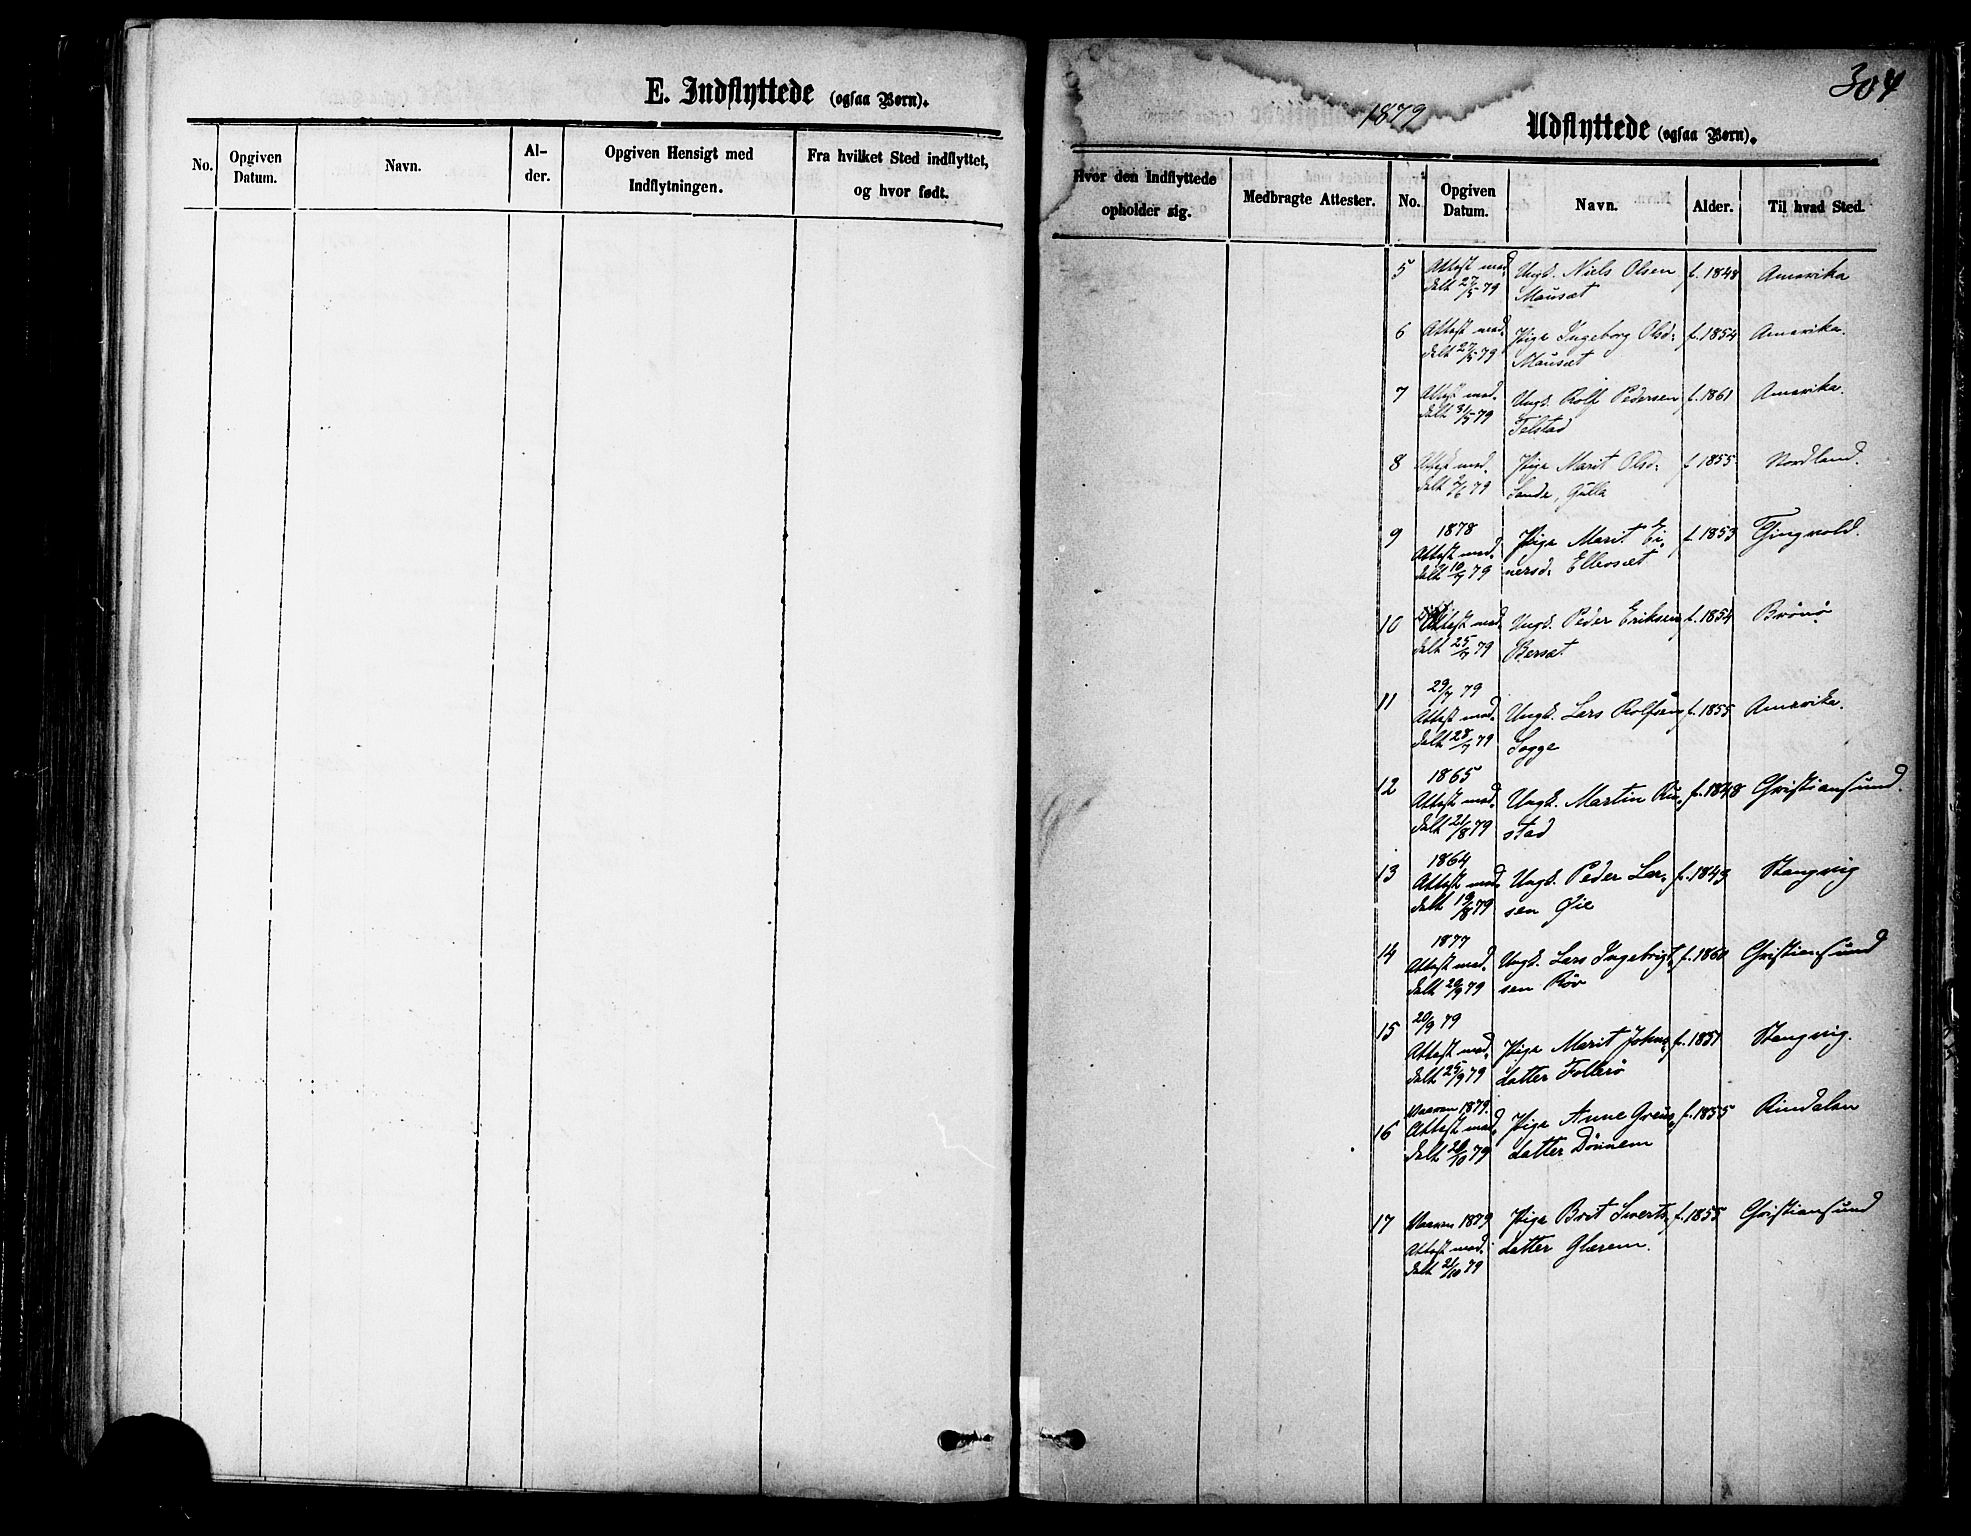 E. Indflyttede (ogsaa Børn).
No.
Opgiven Datum.
Navn.
Al-
der.
Opgiven Hensigt med
Indflytningen.
Fra hvilket Sted indflyttet,
og hvor født.
304
1879
Udflyttede (ogsaa Børn).
Hvor den Indflyttede
opholder sig.
Medbragte Attester.
No.
Opgiven Datum.
Navn.
Alder.
Til hvad Sted.
5 Attest med- Ungk. Niels Olsen f. 1848 Amerika
delt 27/5 79 Mausæt
6 Attest med- Pige Ingeborg Olsd: f. 1854 Amerika.
delt 27/5 79 Mausæt
7 Attest med- Ungk. Rolf Pedersen f. 1861 Amerika.
delt 31/5 79 Telstad
8 Attest med- Pige Marit Olsd: f. 1855 Nordland.
delt 79 Sande, Gulla
1878
9 Attest med- Pige Marit Ei- f. 1853 Tingvold.
delt 10/7 79 nersd:
10 Attest med- Ungk. Peder Eriksen f. 1854 Brönö
delt 25/7 79 Bersæt
29/7 79
11 Attest med- Ungk. Lars Rolfsen f. 1855 Amerika.
delt 28/7 79 Sogge
1865
12 Attest med- Ungk. Martin Ru- f. 1848 Christiansund.
delt 21/8 79 stad
1864
13 Attest med- Ungk. Peder Lar- f. 1843 Stangvig
delt 19/8 79 sen Øie
1877
14 Attest med- Ungk. Lars Ingebrigt- f. 1860 Christiansund
delt 20/9 79 sen Röv
20/9 79
15 Attest med- Pige Marit Johns- f. 1851 Stangvig.
delt 25/9 79 datter Follerö
Vaaren 1879.
16 Attest med- Pige Anne f. 1855 Rindalen
delt 79 datter Dönnem
17 Vaaren 1879 Pige Brit Siverts- f. 1855 Christiansund
Attest med- datter Glærem.
delt 21/10 79